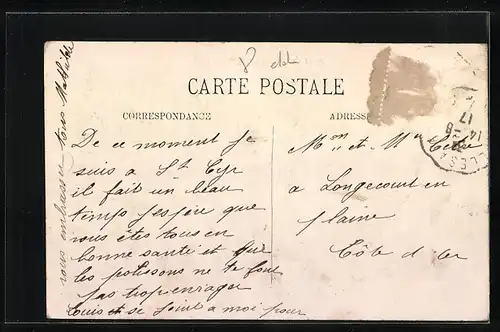 CARTE POSTALE
CORRESPONDANCE
ADRESSE
De ce moment je
suis a St Cyr
il fait un beau
temps jespeu que
nous êtes tous en
bonne santé et que
les polissons ne te font
pas trop enrager
Louis et se joint a moi pour
vous embrasser tous Mathilde
Mon et Mm
a Longecourt en
plaine
Côte d or